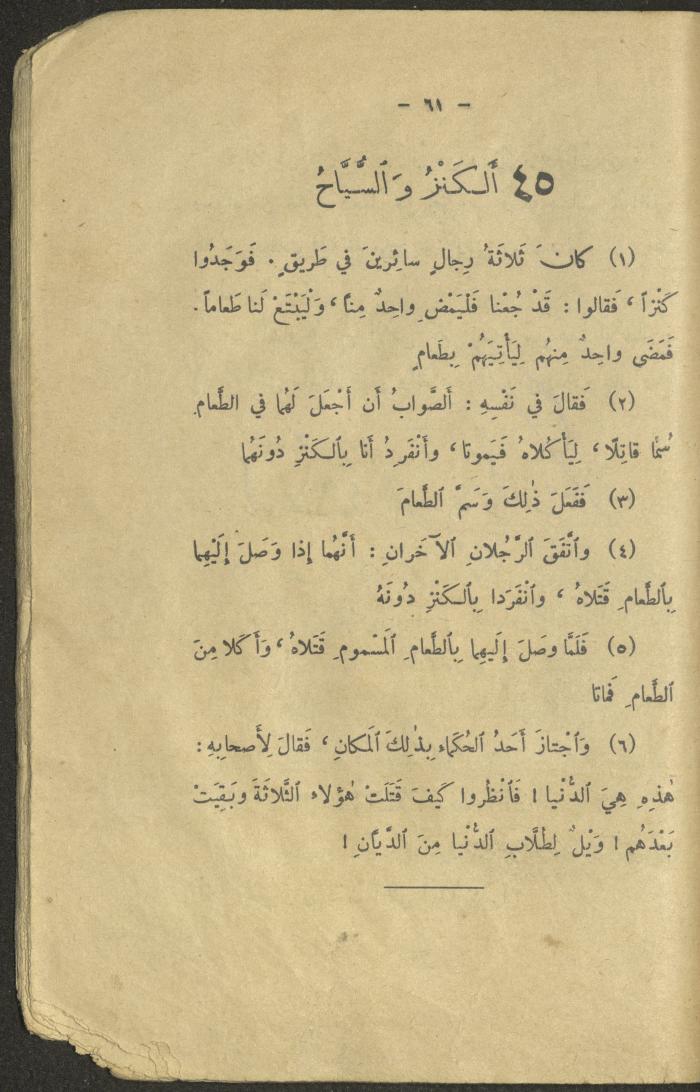 - ٦١ -
٤٥ أَلكَنْزُ وَٱلسُّيَّاحُ
(١) كانَ ثَلاثَةُ رِجالٍ سائِرينَ في طَريقٍ. فَوَجَدُوا
كَنْزاً، فَقالوا: قَدْ جُعْنا فَلْيَمْضِ واحِدٌ مِنَّا، وَلْيَبْتَعْ لَنا طَعاماً.
فَمَضَى واحِدٌ مِنهُم لِيَأْتِيَهُمْ بِطَعامٍ
(٢) فَقالَ في نَفْسِهِ: أَلصَّوابُ أَن أَجْعَلَ لَهُما في الطَّعامِ
سُمّاً قاتِلًا، لِيَأْكُلاهُ فَيَموتا، وأَنْفَرِدُ أَنا بِٱلكَنْزِ دُونَهُما
(٣) فَفَعَلَ ذٰلِكَ وَسَمَّ ٱلطَّعامَ
(٤) وٱتَّفَقَ ٱلرَّجُلانِ ٱلآخَرانِ: أَنَّهُما إِذا وَصَلَ إِلَيْهِما
بِٱلطَّعامِ قَتَلاهُ، وٱنْفَرَدا بِٱلكَنْزِ دُونَهُ
(٥) فَلَمَّا وصَلَ إِلَيهِما بِٱلطَّعامِ ٱلمَسْمومِ قَتَلاهُ، وَأَكَلا مِنَ
ٱلطَّعامِ فَماتا
(٦) وَٱجْتازَ أَحَدُ ٱلحُكَماء بِذٰلِكَ ٱلمَكانِ، فَقالَ لِأَصحابِهِ:
هٰذِهِ هِيَ ٱلدُّنْيا! فَٱنْظُروا كَيفَ قَتَلَتْ هٰؤلاء ٱلثَّلاثَةَ وبَقِيَتْ
بَعْدَهُم! وَيْلٌ لِطُلَّابِ ٱلدُّنْيا مِنَ ٱلدَّيَّانِ!